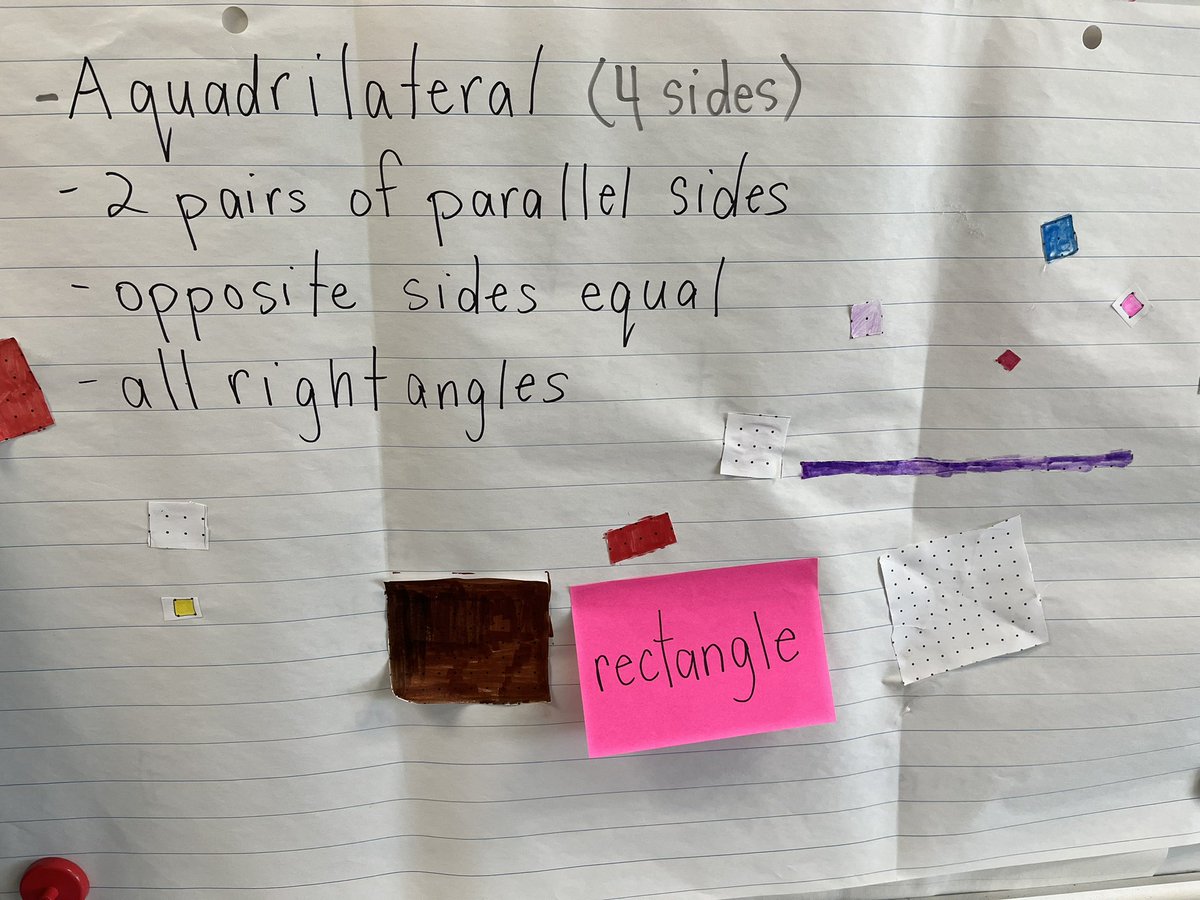 - A quadrilateral (4 sides)
- 2 pairs of parallel sides
- opposite sides equal
- all right angles
rectangle